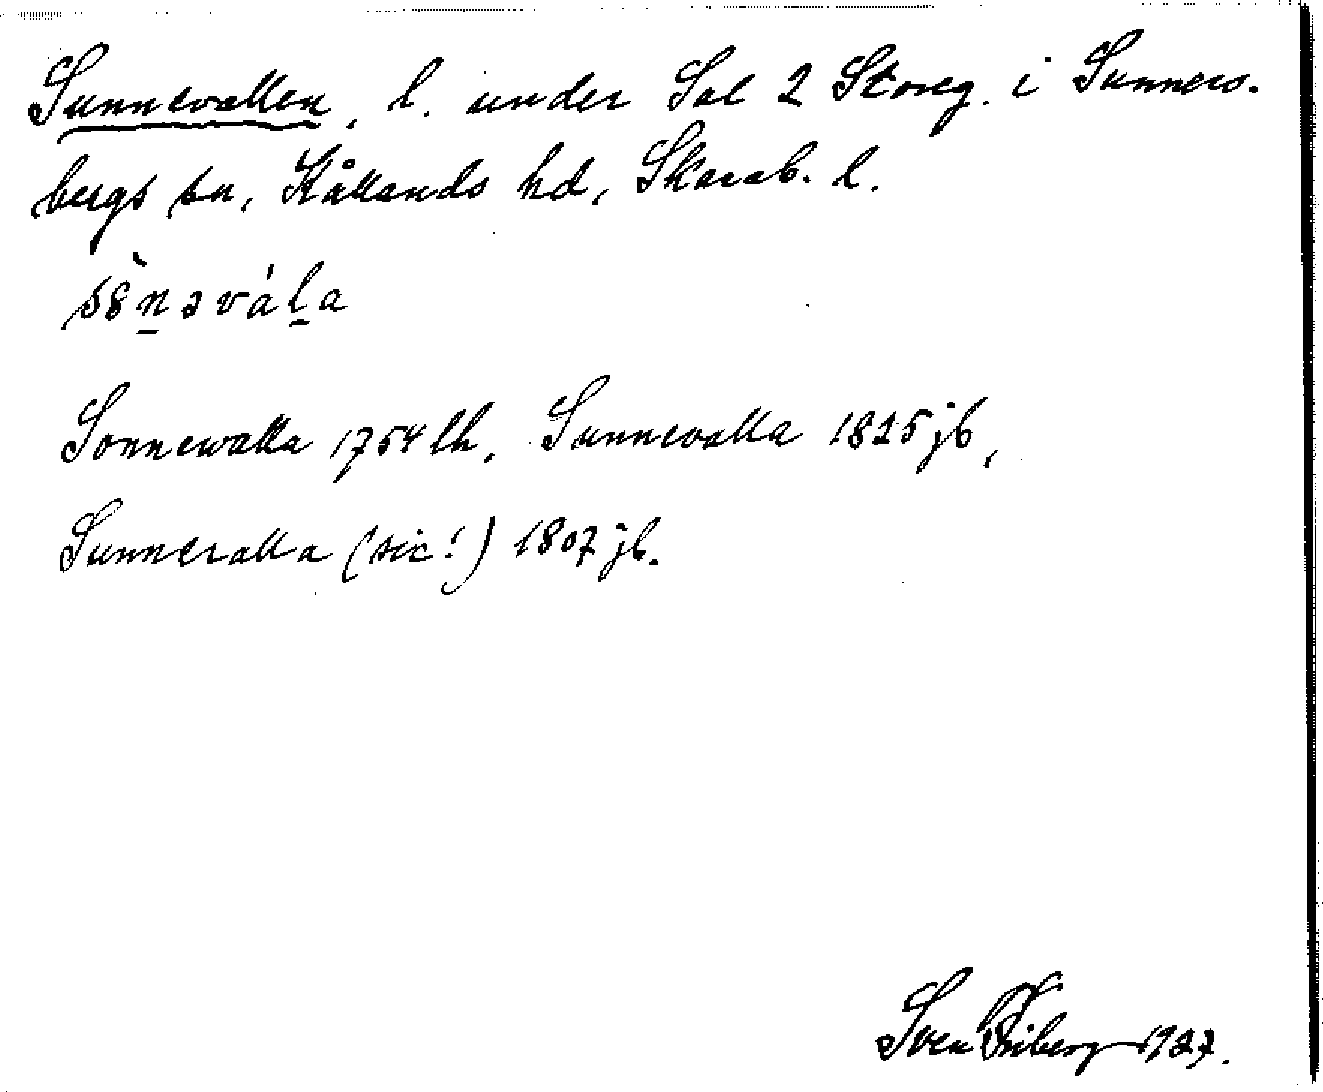 Sunnevallen, l. under Sal 2 Storeg. i Sunners-
bergs sn, Kållands hd, Skarab. l.
s8̀n̲əvál̲a
Sonnewalla 1754 lh, Sunnevalla 1825 jb,
Sunneralla (sic!) 1807 jb.
Sven Friberg 1927.